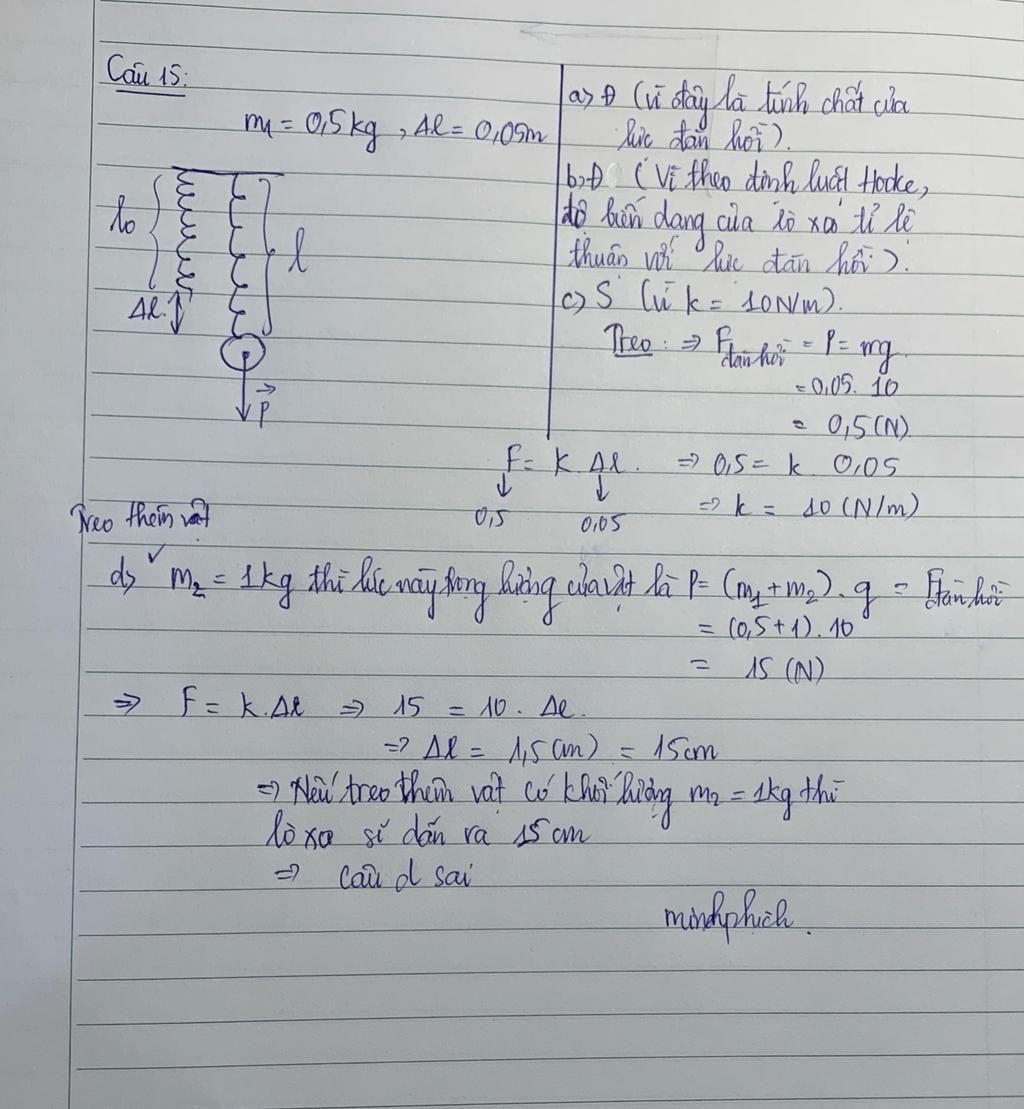 Câu 15:
m1 = 0,5kg, Δl = 0,05m
l0
l
Δl.
P
a) Đ (vì đây là tính chất của
lực đàn hồi).
b) Đ (Vì theo định luật Hooke,
độ biến dạng của lò xo tỉ lệ
thuận với lực đàn hồi).
c) S (vì k = 10N/m).
Treo: ⇒ Fđàn hồi = P = mg.
= 0,05. 10
= 0,5 (N)
F = k. Δl. ⇒ 0,5 = k. 0,05
↓ ↓
0,5 0,05 ⇒ k = 10 (N/m)
Treo thêm vật
d) m2 = 1kg thì lúc này trọng lượng của vật là P = (m1 + m2). g = Fđàn hồi
= (0,5+1). 10
= 15 (N)
⇒ F = k.Δl ⇒ 15 = 10. Δl.
⇒ Δl = 1,5 (m) = 15cm
⇒ Nếu treo thêm vật có khối lượng m2 = 1kg thì
lò xo sẽ dãn ra 15 cm
⇒ câu d sai
minhphich.